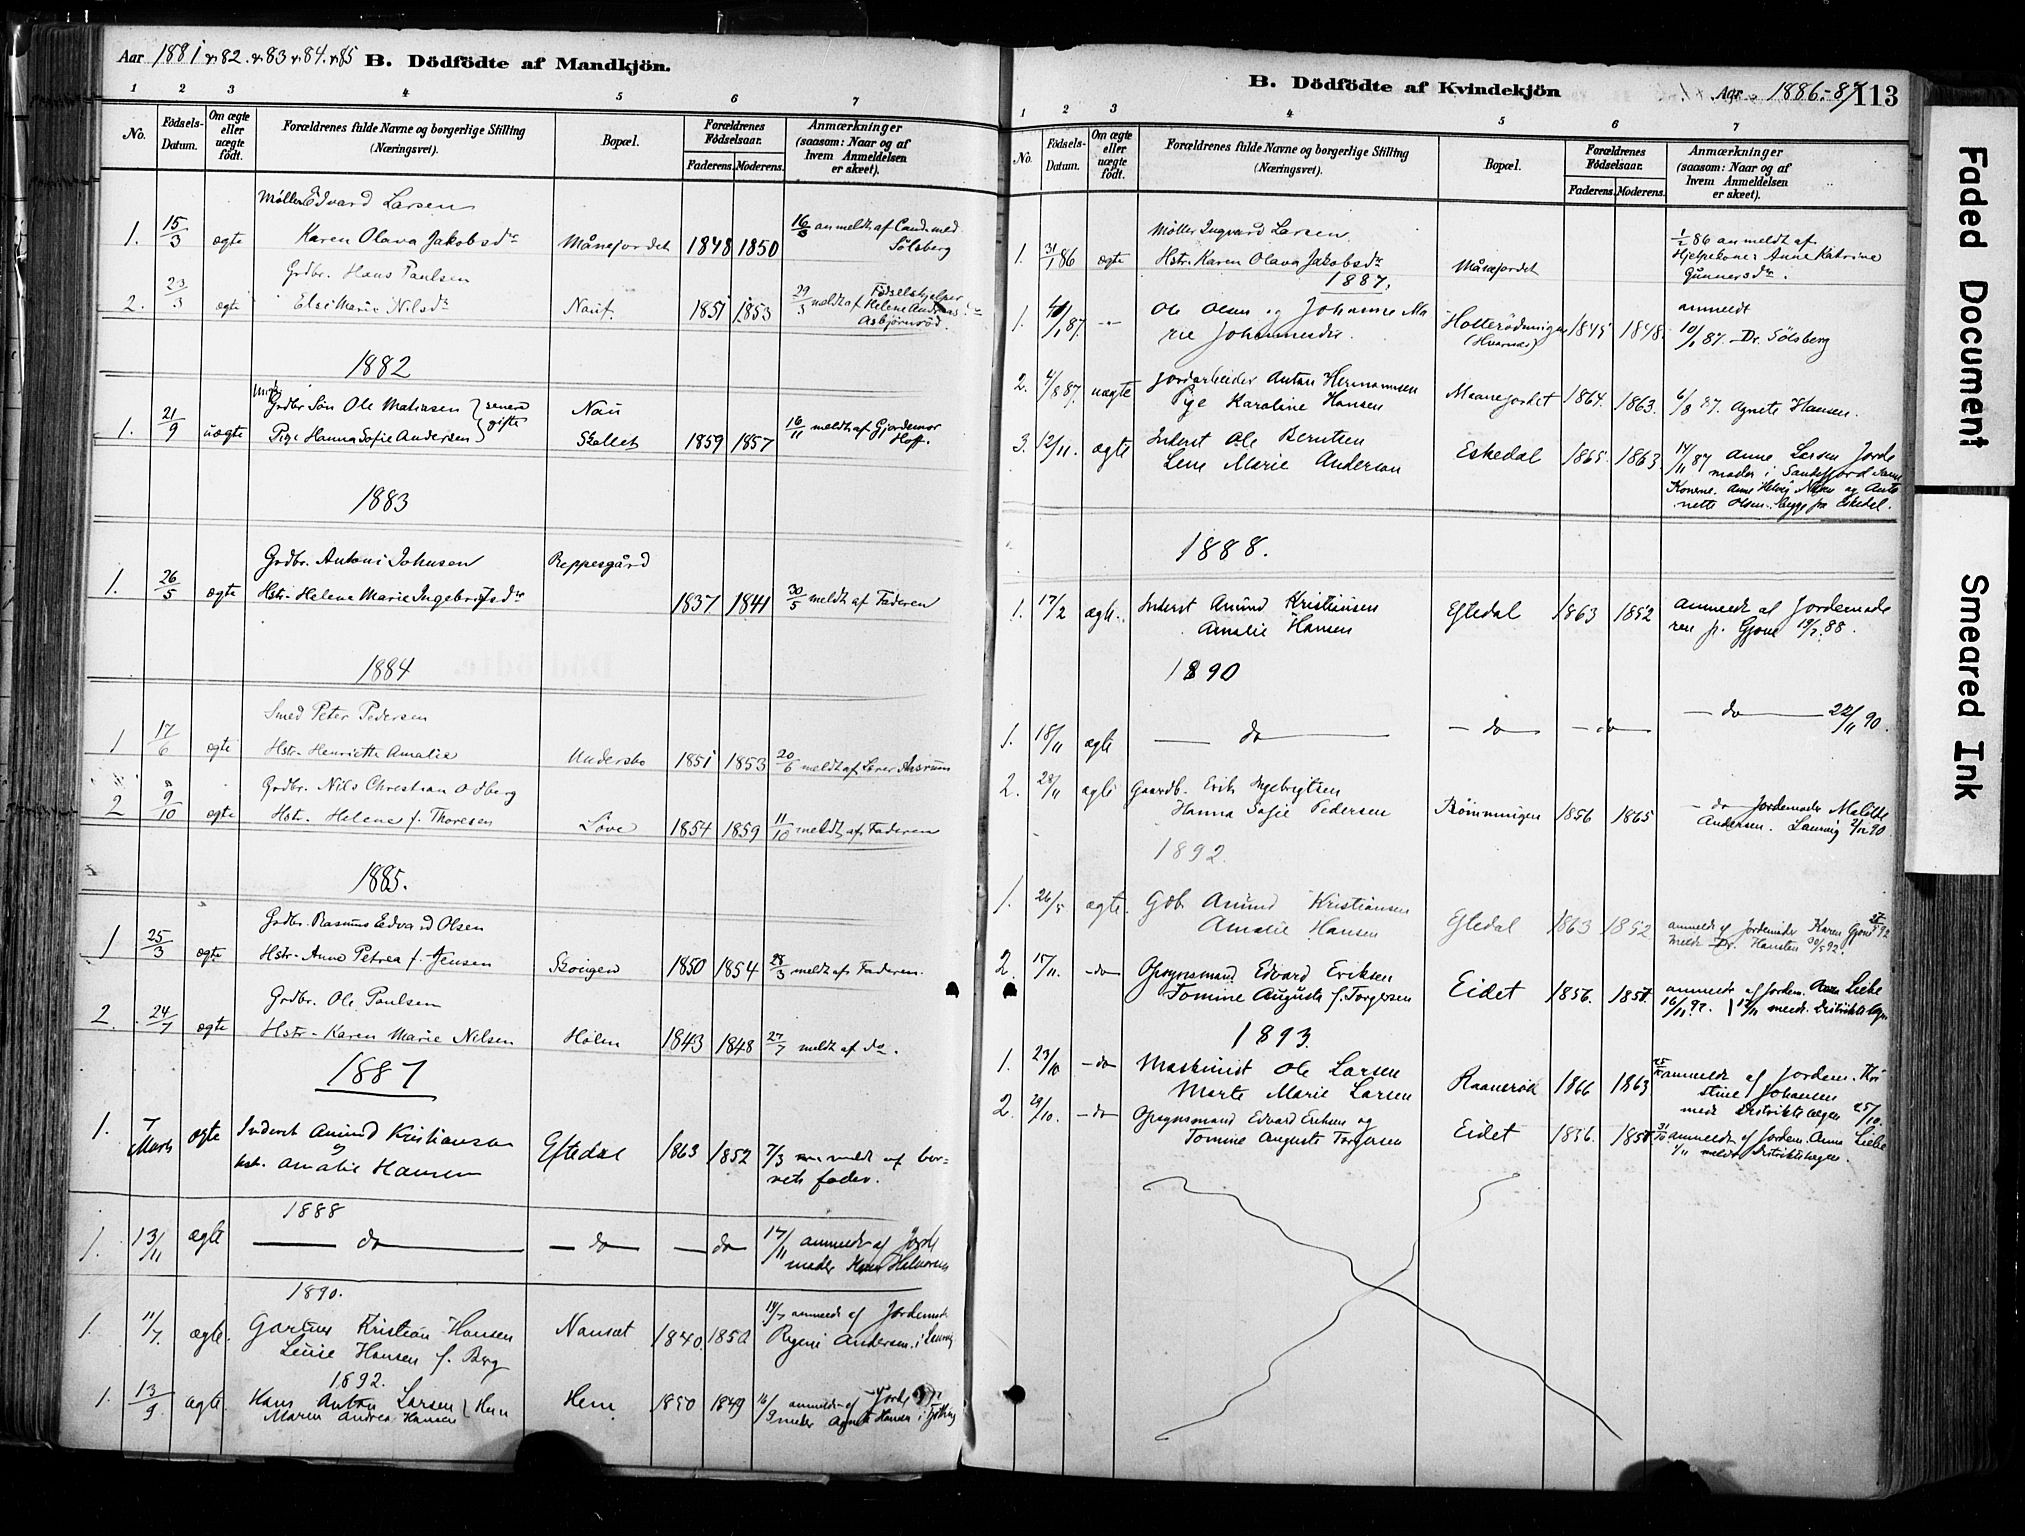 Aar 1881 & 82. & 83 & 84. & 85 B. Dödfödte af Mandkjön.
1 2 3 4 5 6 7
No. Födsels-Datum. Om ægte eller uægte födt. Forældrenes fulde Navne og borgerlige Stilling (Næringsvei). Bopæl. Forældrenes Födselsaar. Faderens. Moderens. Anmærkninger (saasom: Naar og af hvem Anmeldelsen er skeet).
Møller Edvard Larsen
1. 15/3 ægte Karen Olava Jakobsdr Månejordet 1848 1850 16/3 anmeldt af Cand. med. Sølsberg
Grdbr. Hans Paulsen
2. 23/3 ægte Else Marie Nilsdr Nauf 1851 1853 29/3 meldt af Fødselshjelper Helene Andreas Asbjørnrød.
1882
Grdbr. Søn Ole Mathisen } senere Nau
1. 21/9 uægte Pige Hanna Sofie Andersen } gifte Skallet 1859 1857 16/11 meldt af Gjordemor Hoff.
1883
Grdbr. Antoni Johnsen Reppesgård
1. 26/5 ægte Hstr. Helene Marie Ingebrigtsdr 1837 1841 30/5 meldt af Faderen
1884
Smed Peter Pedersen
1 17/6 ægte Hstr. Henriette Amalie Undersbo 1851 1853 20/6 meldt af Lærer Ansrum
Grdbr. Nils Christian Odberg
2 9/10 ægte Hstr. Helene f. Thoresen Löve 1854 1859 11/10 meldt af Faderen
1885.
Grdbr. Rasmus Edvard Olsen
1 25/3 ægte Hstr. Anne Petrea f. Jensen Skoigen 1850 1854 28/3 meldt af Faderen.
Grdbr. Ole Paulsen
2. 24/7 ægte Hstr. Karen Marie Nilsen Holm 1843 1848 27/7 meldt af do.
1887
1. 7 Marts ægte Inderst Amund Kristiansen Eftedal 1863 1852 7/3 anmeldt af bar-
og hst. Amalie Hansen nets fader.
1888
1. 13/11 ægte — do — — do — — do 17/11 anmeldt af Jorde
moder Halvorsen
1890.
1. 11/7 ægte. Gartner Kristian Hansen Nanset 1840 1850 14/7 anmeldt af Jordemoder
Louise Hansen f. Berg Regine Andersen i Laurvig
1892.
1. 13/9 ægte Hans Anton Larsen } Hem Hem 1850 1849 anmeldt af Jorde
Maren Andrea Hansen moder Agnete Hansen i
B. Dödfödte af Kvindekjön Aar 1886-87 113
1 2 3 4 5 6 7
No. Födsels-Datum. Om ægte eller uægte födt. Forældrenes fulde Navne og borgerlige Stilling (Næringsvei). Bopæl. Forældrenes Födselsaar. Faderens. Moderens. Anmærkninger (saasom: Naar og af hvem Anmeldelsen er skeet).
Møller Ingvard Larsen 1/2 86 anmeldt af
1. 31/1 86 ægte Hstr. Karen Olava Jakobsdr Månejordet Hjelpekone: Anne Katrine Gunnersdr.
1887.
1. /1 87. — Ole Olsen og Johanne Ma Holterødningen 1845 1848. anmeldt
rie Johannesdr. (Hvarnes) 10/1 87. Dr. Sölsberg
2. 4/8 87. uægte Jordarbeider Anton Hermannsen Maanejordet 1864. 1863. 6/8 87. Agnete Hansen.
Pige Karoline Hansen
3. 12/11. ægte Inderst Ole Berntsen Eskedal 1865. 1863 14/11 87 Anne Larsen Jorde
Lene Marie Anderson moder i Sandefjord samt
Konerne Anne Helvig Næss og Anto
nette Olsen. begge fra Eskedal.
1888.
1. 17/2 ægte. Inderst Amund Kristiansen Eftedal 1863 1852 Anmeldt af Jordemode
Amalie Hansen ren fr. Gjone 19/2 88.
1890
1. 18/11 ægte — do — — do — — do — — do — 22/11 90.
2. 28/11 ægte Gaardb. Erik Ingebrigtsen Bømmingen 1856 1865 — do Jordemoder Malothe
Hanna Sofie Pedersen Andersen. Laurvig 2/12 90
1892.
1. 26/5 ægte. Gbr. Amund Kristiansen Eftedal 1863 1852 anmeldt af Jordemoder Karen Gjone 27/5 92
Amalie Hansen meldt Dr. Hansten 30/5 92.
2. 15/11. — do Opsynsmand Edvard Eriksen Eidet 1856. 1857. anmeldt af Jordem. Anne Liebe
Tomine Augusta f. Torgersen 16/11 92. 17/11 meldt Distriktslægen
1893.
1. 23/10 — do Maskinist Ole Larsen Raanerød 1866 1863 25/10 anmeldt af Jordem. Kri
Marte Marie Larsen stine Johansen
meldt Distriktslægen 25/10.
2. 29/10. — do Opsynsmand Edvard Eriksen og Eidet 1856. 1857 31/10 anmeldt af Jordem. Anne Liebe
Tomine Augusta Torgersen 1/11 meldt Distriktslægen.
Faded Document
Smeared Ink